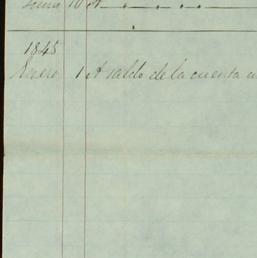 10 A
1845
Enero 1 A saldo de la cuenta